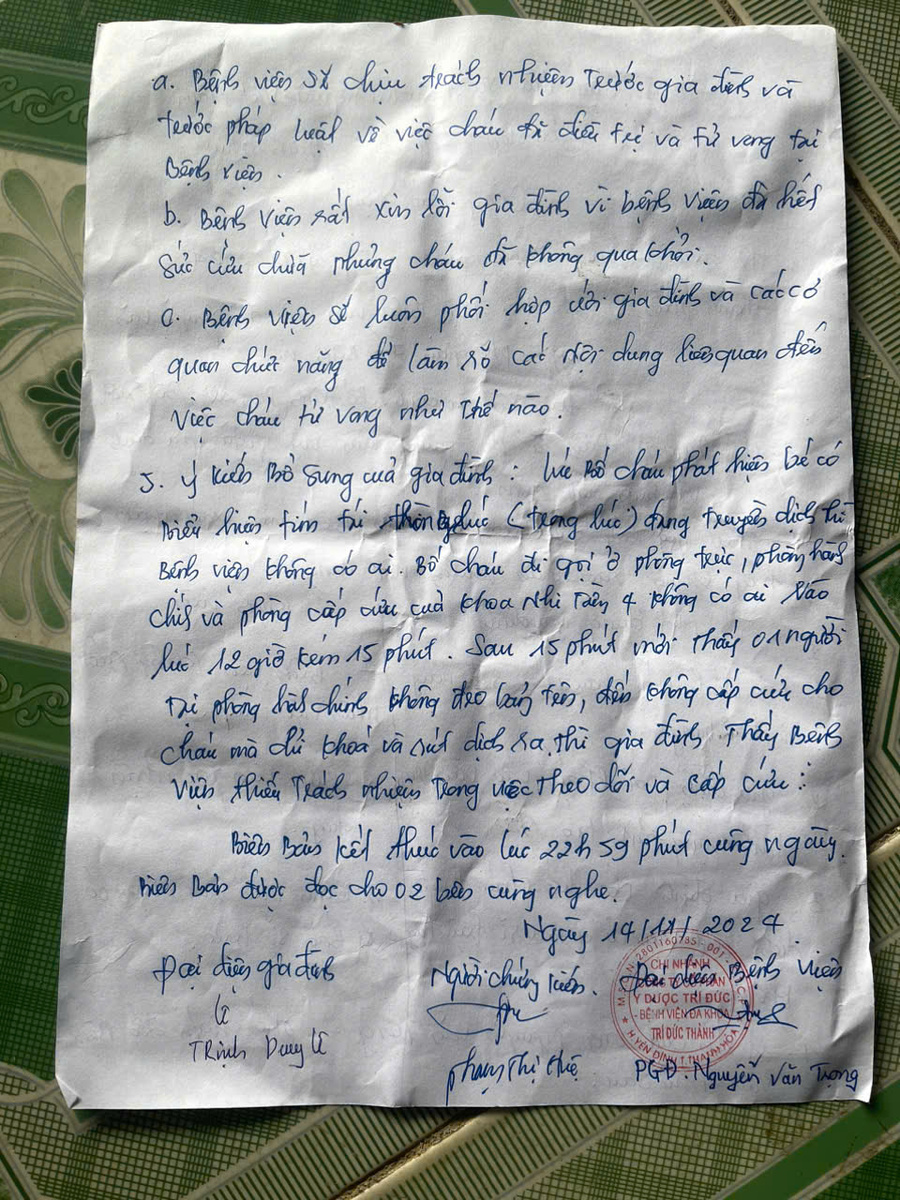 a. Bệnh viện sẽ chịu trách nhiệm trước gia đình và
trước pháp luật về việc cháu đã điều trị và tử vong tại
Bệnh viện.
b. Bệnh viện rất xin lỗi gia đình vì bệnh viện đã hết
sức cứu chữa nhưng cháu đã không qua khỏi.
c. Bệnh viện sẽ luôn phối hợp với gia đình và các cơ
quan chức năng để làm rõ các nội dung liên quan đến
việc cháu tử vong như thế nào.
5. Ý kiến Bổ sung của gia đình: lúc Bố cháu phát hiện bé có
Biểu hiện tím tái trong lúc (trong lúc) đang truyền dịch thì
Bệnh viện không có ai. Bố cháu đi gọi ở phòng trực, phòng hành
chính và phòng cấp cứu của khoa Nhi Tầng 4 không có ai vào
lúc 12 giờ kém 15 phút. Sau 15 phút mới thấy 01 người
tại phòng hành chính không đeo bảng tên, đến không cấp cứu cho
cháu mà chỉ khoá và rút dịch ra, thì gia đình thấy Bệnh
viện thiếu trách nhiệm trong việc theo dõi và cấp cứu:
Biên Bản kết thúc vào lúc 22h 59 phút cùng ngày.
Biên Bản được đọc cho 02 bên cùng nghe.
Ngày 14/11/2024
Đại diện gia đình
Người chứng kiến.
Đại diện Bệnh viện
Trịnh Duy Lê
Phạm Thị Huệ
PGĐ. Nguyễn Văn Trọng
CHI NHÁNH
Y DƯỢC TRÍ ĐỨC
- BỆNH VIỆN ĐA KHOA
TRÍ ĐỨC THÀNH
H. YÊN ĐỊNH T. THANH HÓA